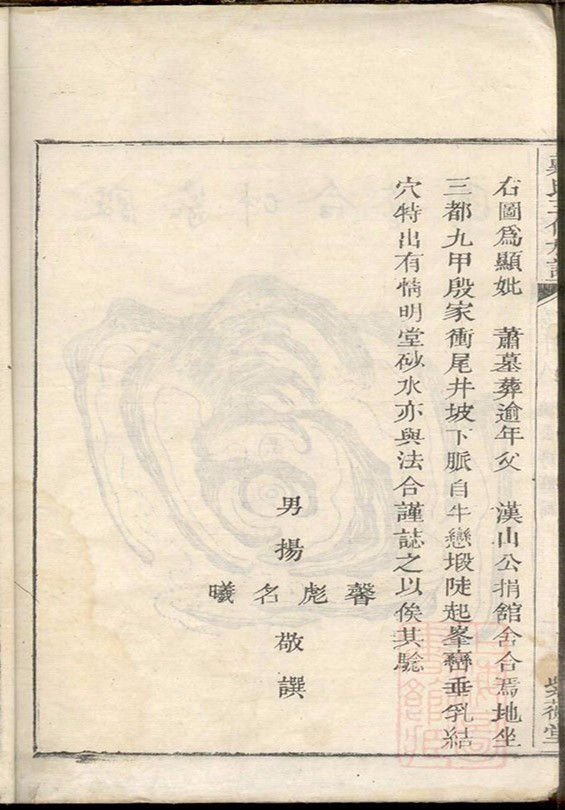 右圖爲顯妣 蕭墓葬逾年父 漢山公捐館舍合焉地坐
三都九甲殷家衝尾井坡下脈自牛戀塅陡起峯巒垂乳結
穴特出有情明堂砂水亦與法合謹誌之以俟其驗
男揚
馨
彪
名
曦
敬譔
紫薇堂